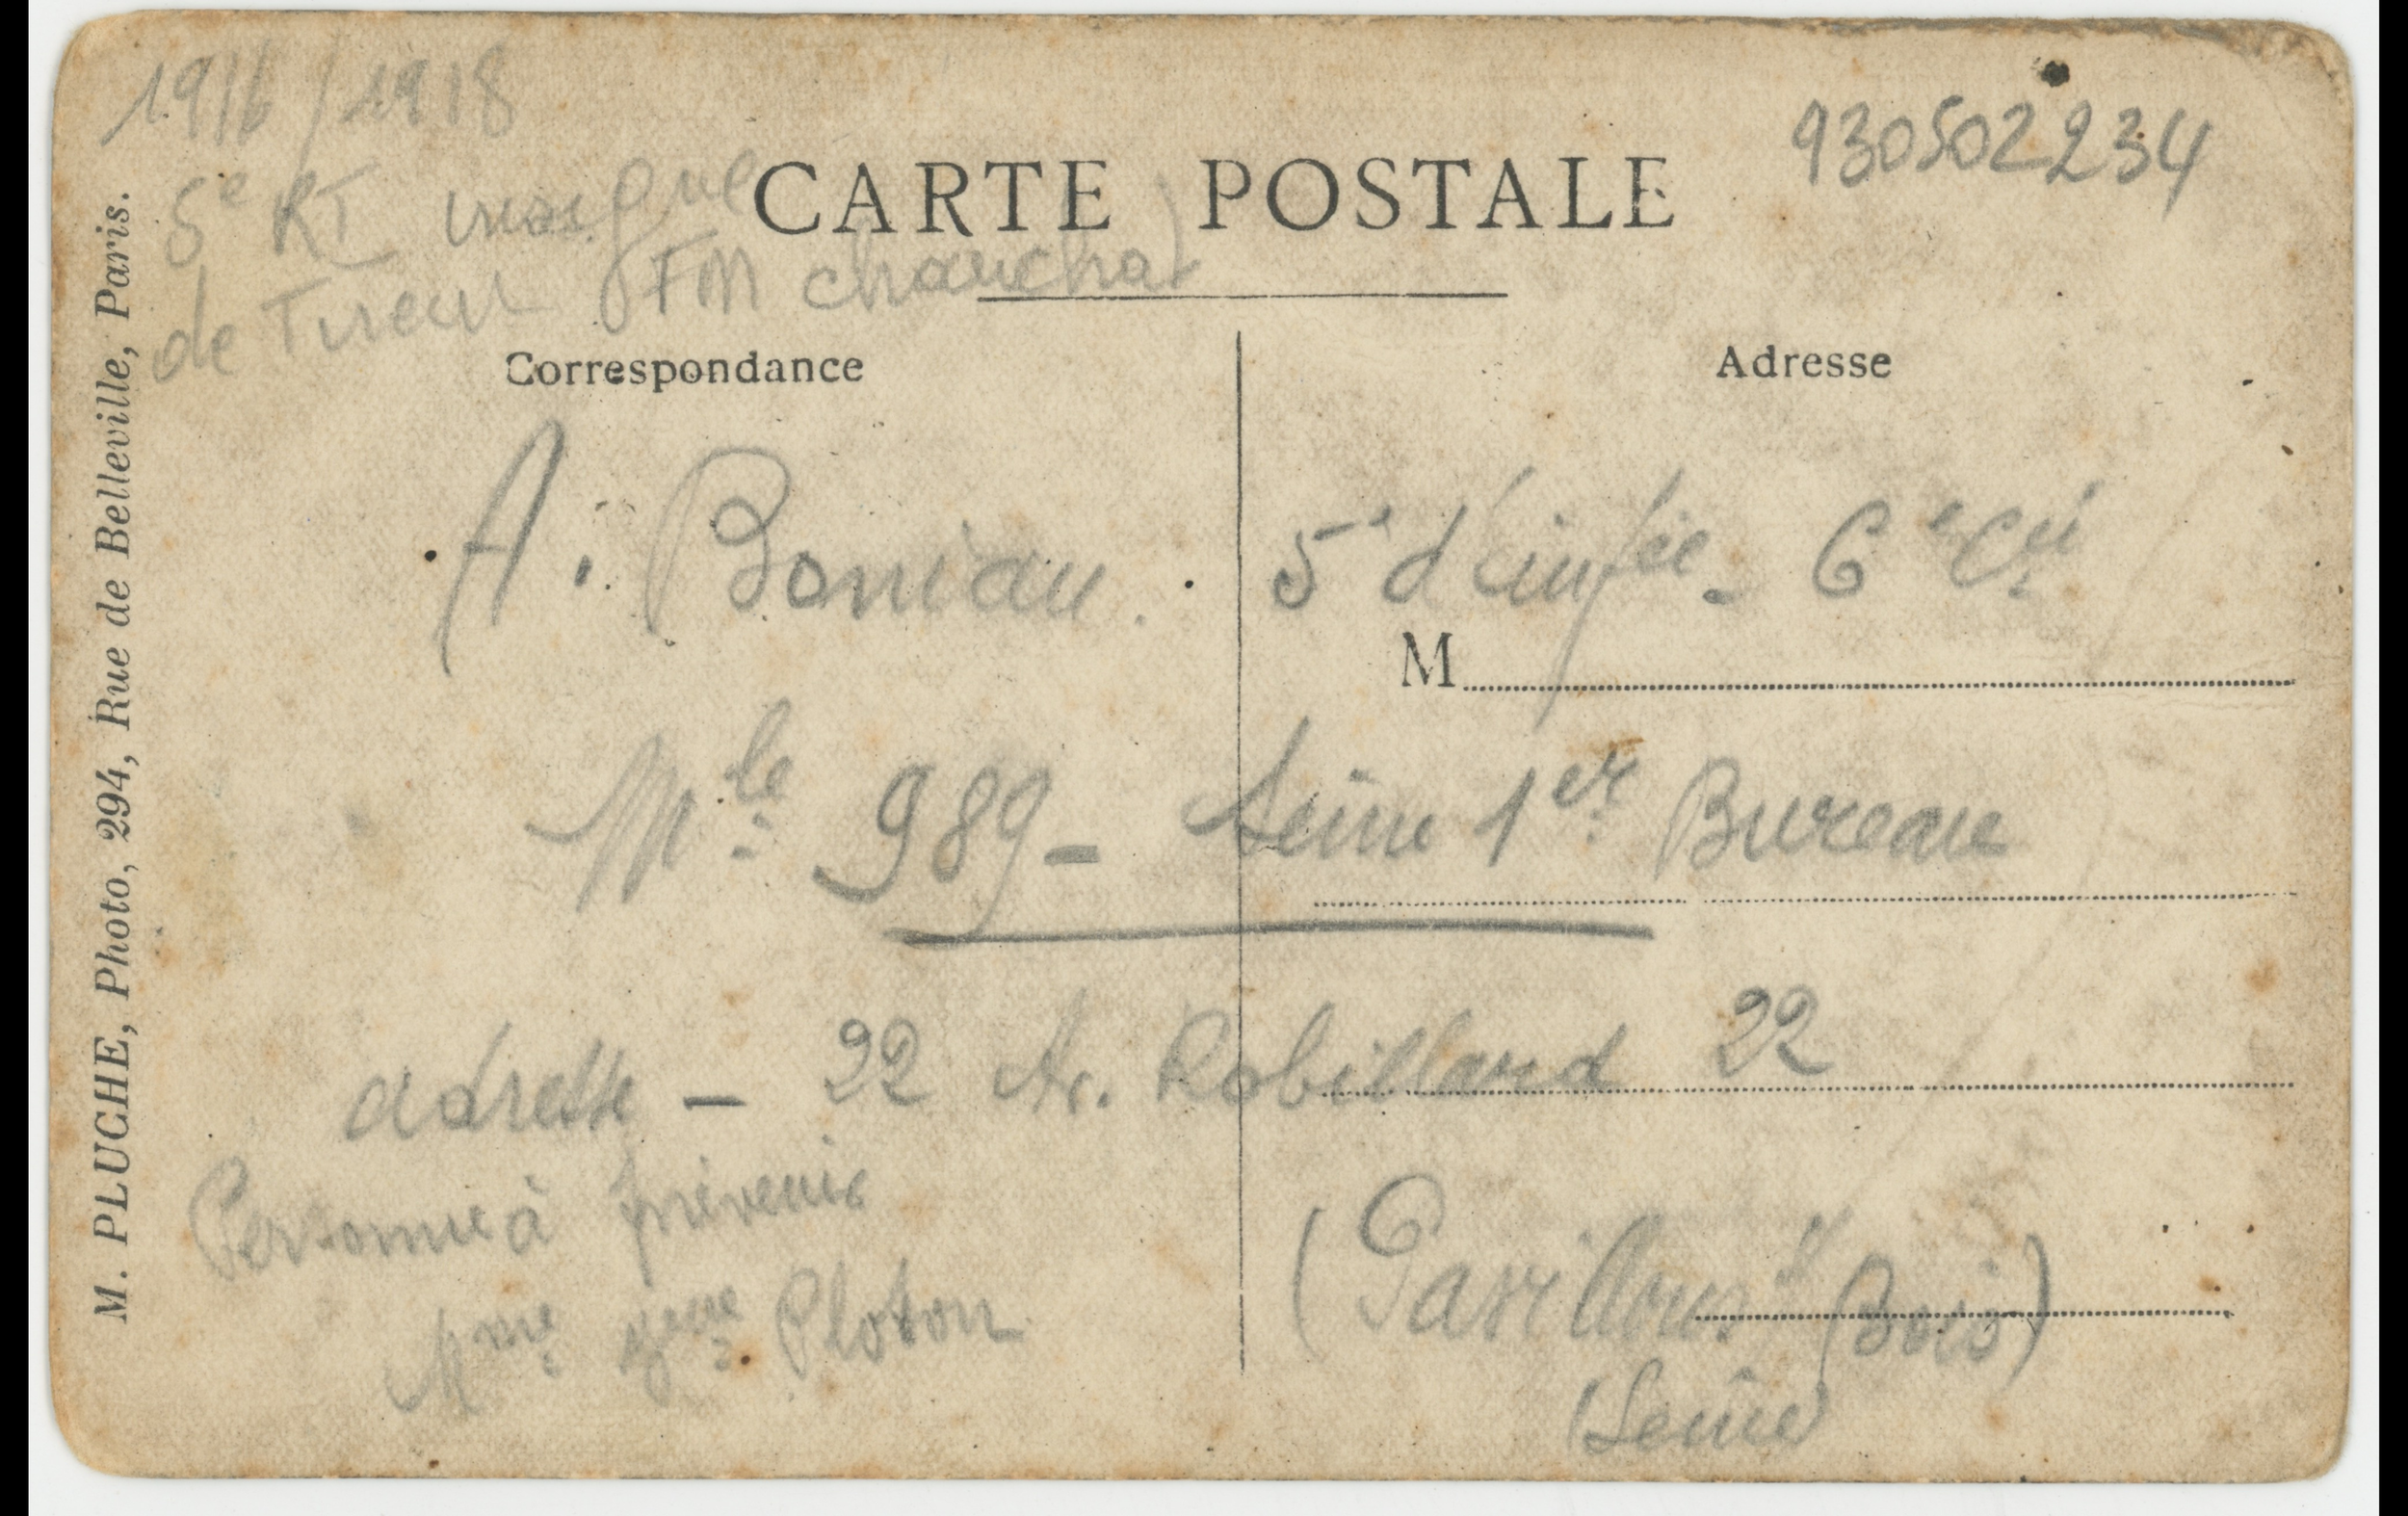 1916/1918
930502234
5e RI insigne
CARTE POSTALE
de Tireur FM chauchat
Correspondance
Adresse
A. Boniau. 5e d'infie. 6e Cie
M
Mle 989 - Seine 1er Bureau
adresse - 22 Av. Robillard 22
Personne à prévenir
(Pavillons s/ Bois)
Mme Vve Ploton
(Seine)
M. PLUCHE, Photo, 294, Rue de Belleville, Paris.